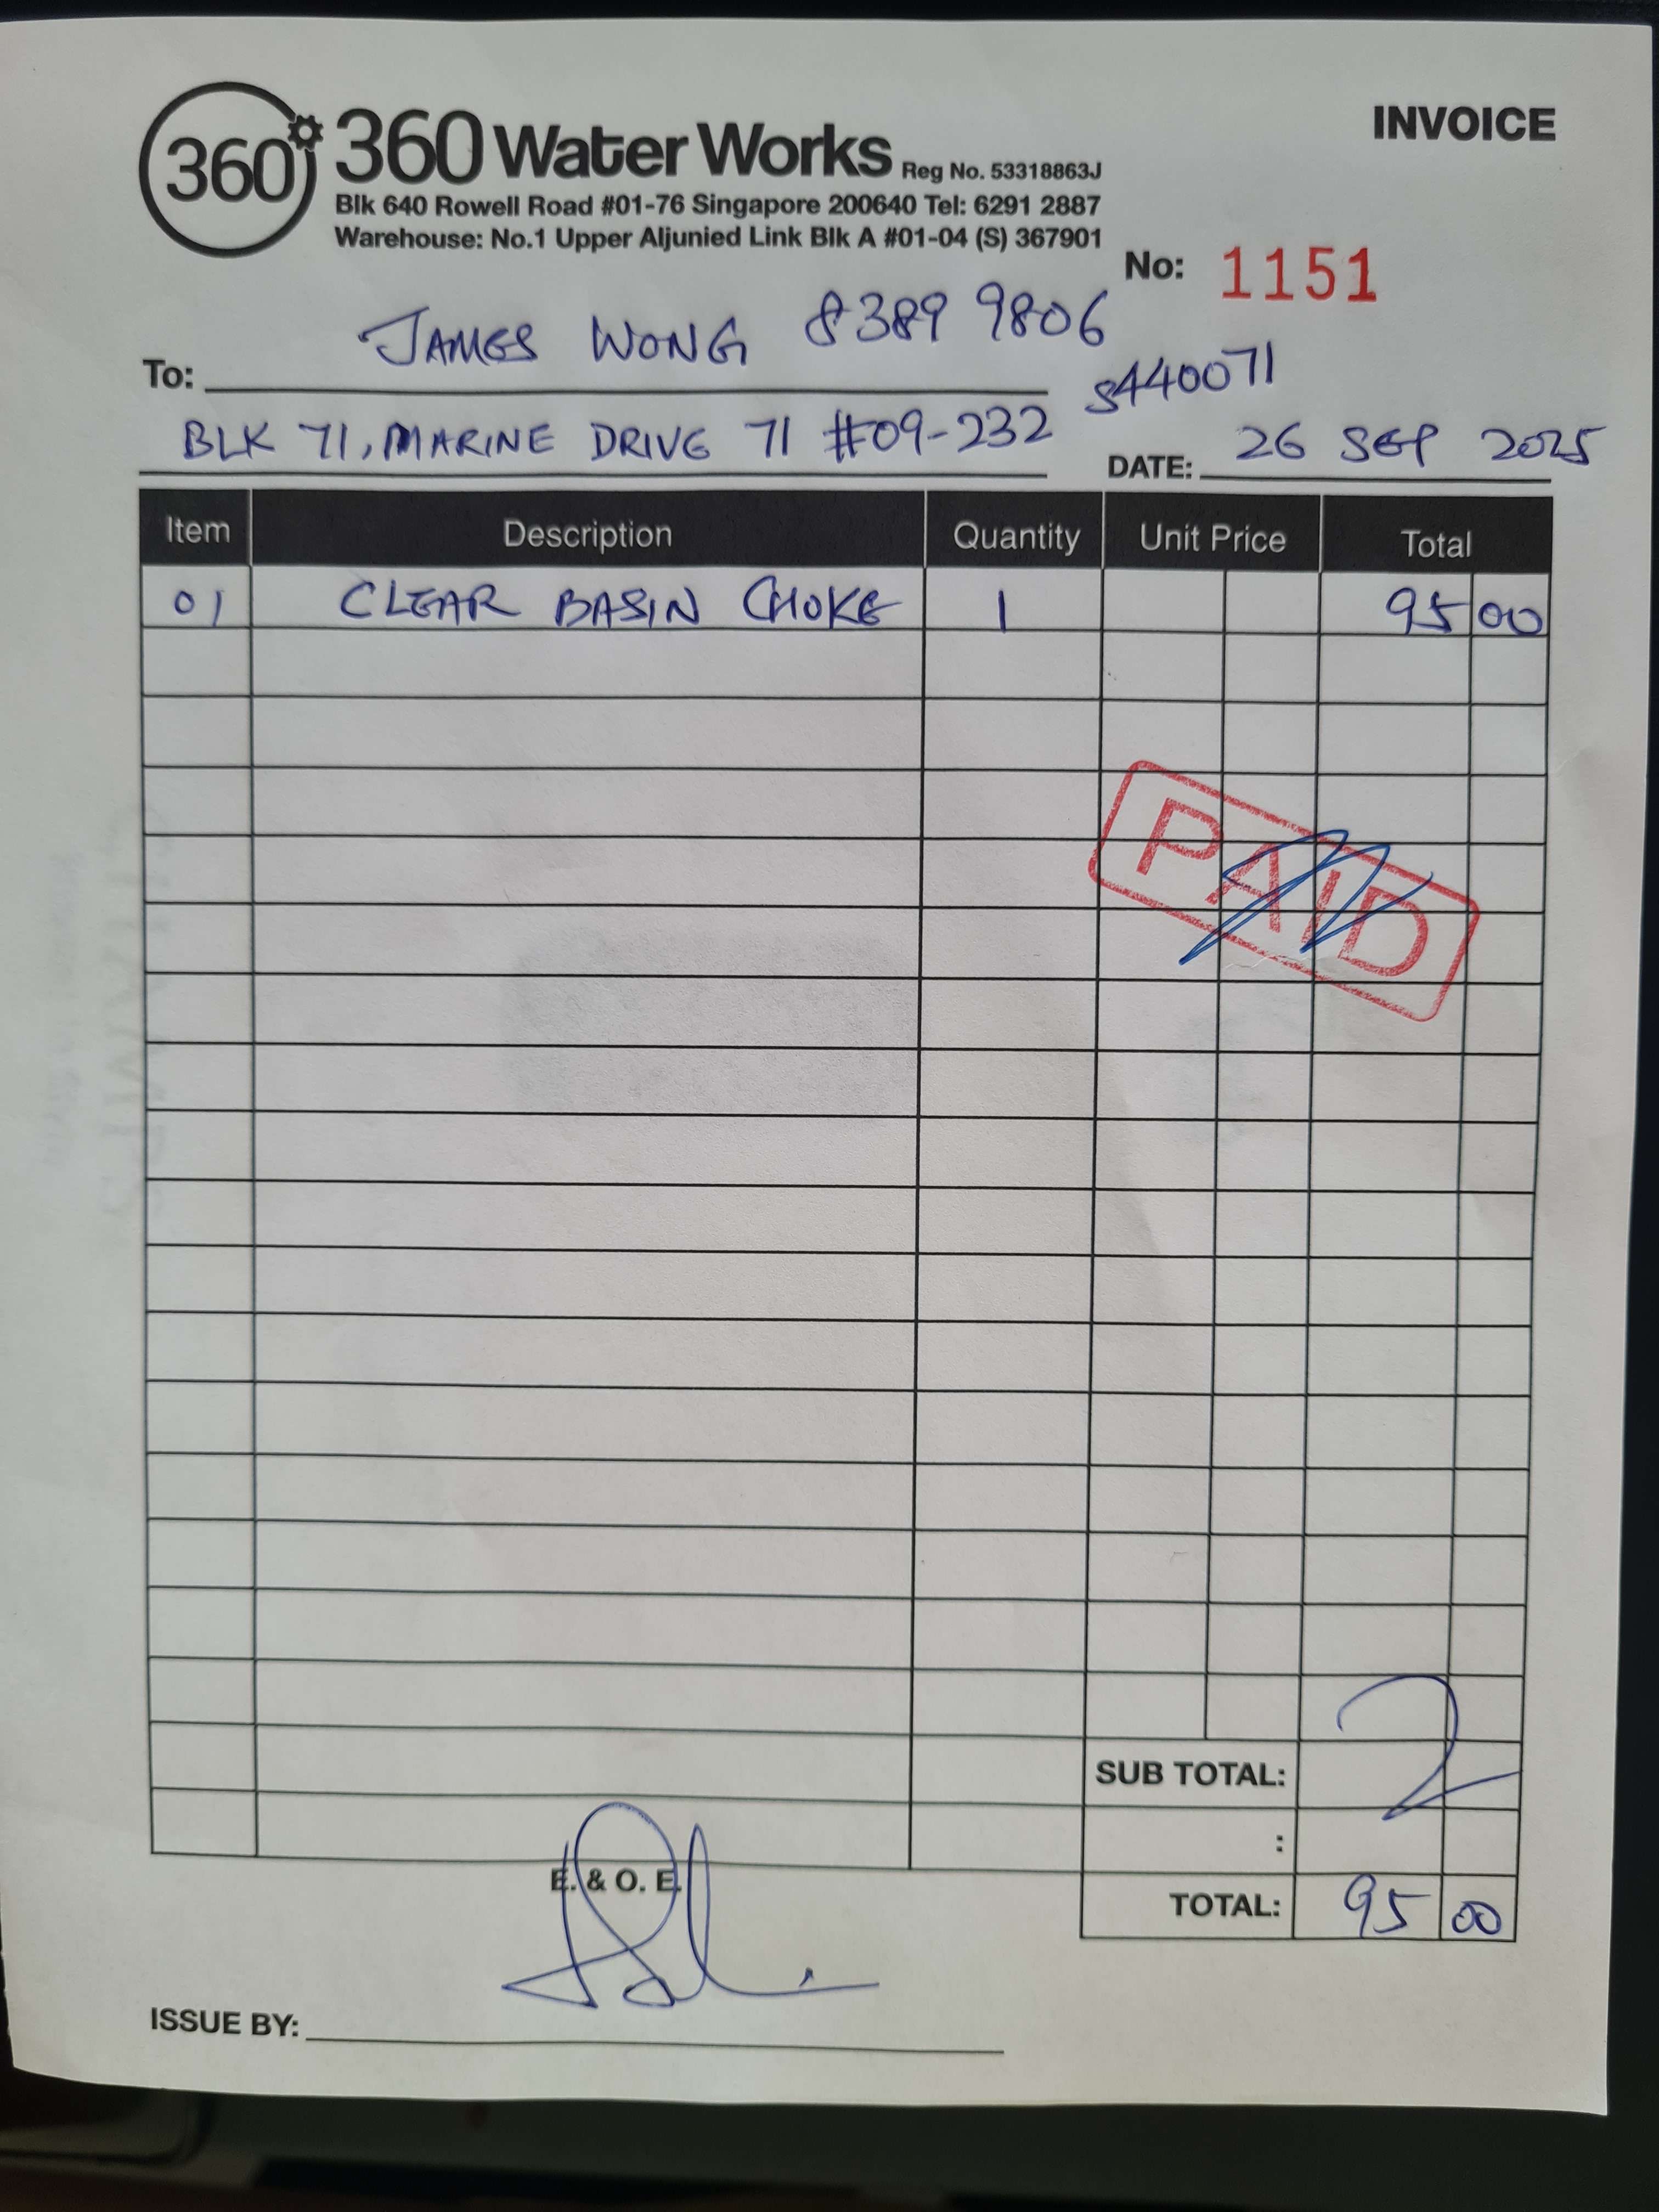 INVOICE
360
360 Water Works Reg No. 53318863J
Blk 640 Rowell Road #01-76 Singapore 200640 Tel: 6291 2887
Warehouse: No.1 Upper Aljunied Link Blk A #01-04 (S) 367901
No: 1151
To: JAMES WONG 8389 9806
S440071
BLK 71, MARINE DRIVE 71 #09-232
DATE: 26 SEP 2025
Item Description Quantity Unit Price Total
01 CLEAR BASIN CHOKE 1 95 00
PAID
SUB TOTAL:
:
E. & O. E.
TOTAL: 95 00
ISSUE BY: